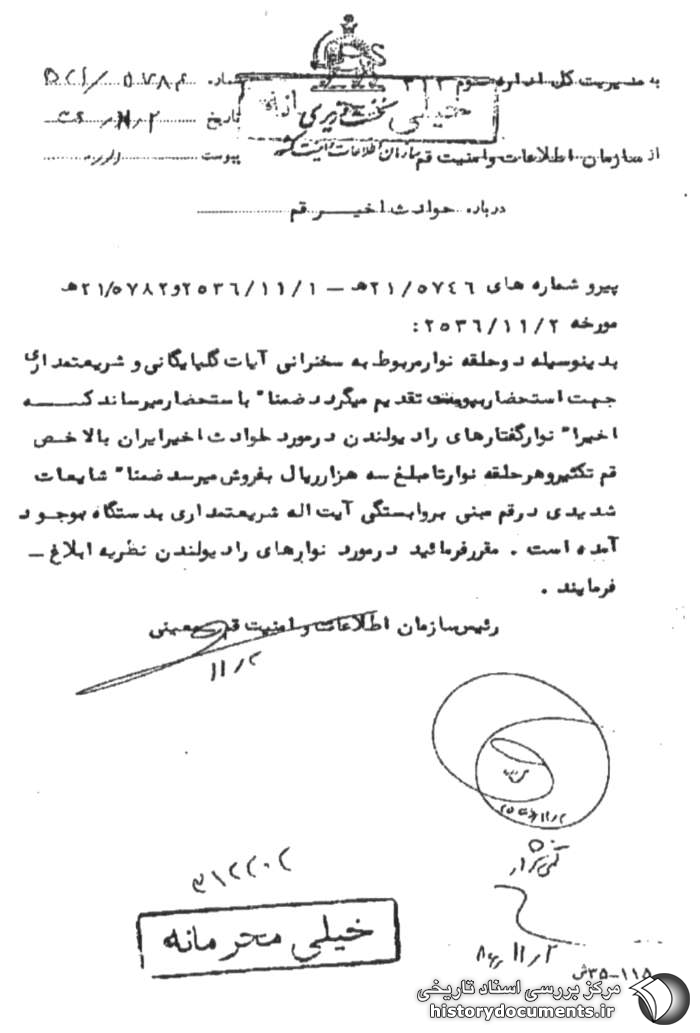 به مدیریت کل اداره سوم ۳۱۲
شماره
خیلی
نخست وزیری
تاریخ
از سازمان اطلاعات و امنیت قم
سازمان اطلاعات و امنیت کشور
پیوست
درباره حوادث اخیر قم
پیرو شماره های ۲۱/۵۷٤٦ه‍ – ۲۵۳٦/۱۱/۱ و ۲۱/۵۷۸۲ه‍
مورخه ۲۵۳٦/۱۱/۲ :
بدینوسیله دوحلقه نوار مربوط به سخنرانی آیات گلپایگانی و شریعتمداری
جهت استحضار بپیوست تقدیم میگردد ضمنا" باستحضار میرساند کـــه
اخیرا" نوار گفتارهای رادیو لندن در مورد حوادث اخیر ایران بالاخص
قم تکثیر و هر حلقه نوار تا مبلغ سه هزار ریال بفروش میرسد ضمنا" شایعات
شدیدی در قم مبنی بر وابستگی آیت اله شریعتمداری بدستگاه بوجود
آمده است . مقرر فرمائید در مورد نوارهای رادیو لندن نظریه ابلاغ –
فرمایند .
رئیس سازمان اطلاعات و امنیت قم – معینی
۱۱/۲
۳۱۲۲۰۲
خیلی محرمانه
۱۱/۲
۳۵-۱۱۸ش
مرکز بررسی اسناد تاریخی
historydocuments.ir